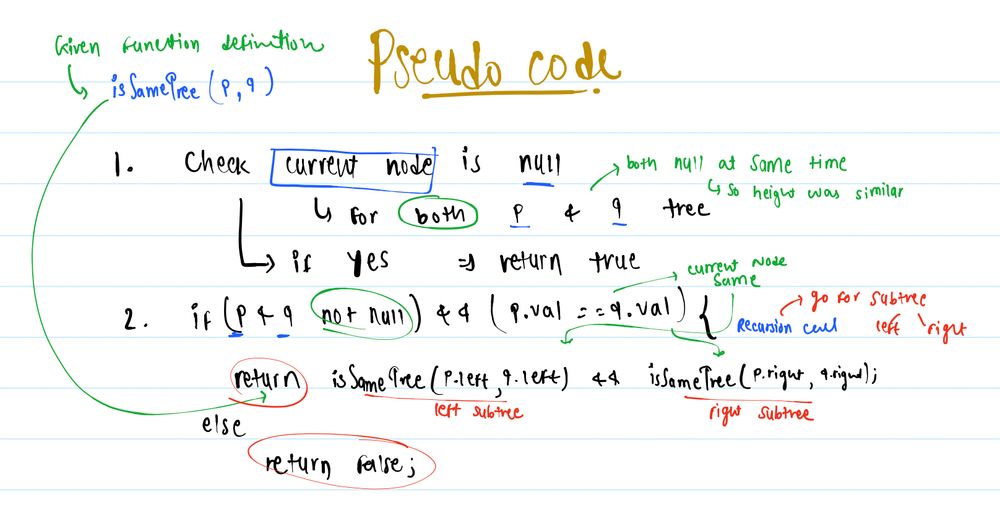 Given function definition
isSameTree (p, q)
Pseudo code
1. Check current node is null
both null at same time
so height was similar
for both p & q tree
if yes => return true
current node
same
2. if (p & q not null) && (p.val == q.val) {
go for subtree
left right
Recursion call
return isSameTree (p.left, q.left) && isSameTree (p.right, q.right);
left subtree
right subtree
else
return false;